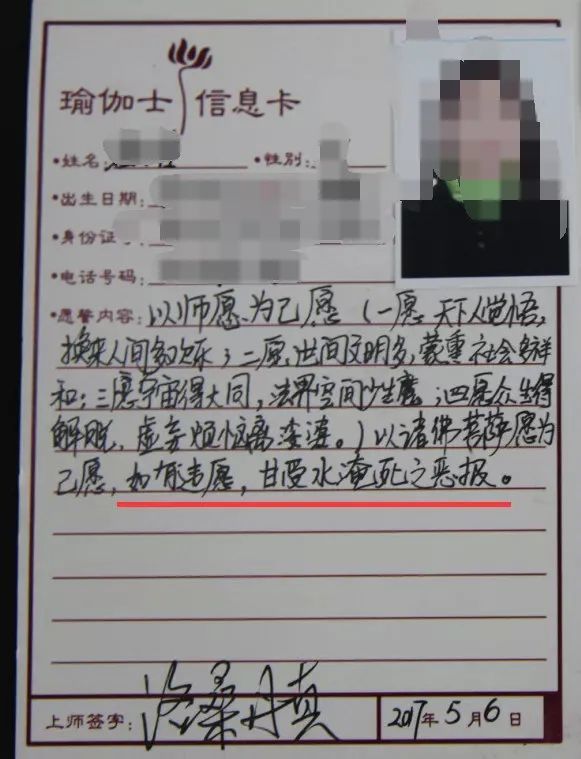 瑜伽士信息卡
·姓名: ·性别:
·出生日期:
·身份证号:
·电话号码:
·愿誓内容: 以师愿为己愿(一愿天下人觉悟,
换来人间多快乐;二愿世间文明多,蒙熏社会多祥
和;三愿宇宙得大同,法界空间少生魔;四愿众生得
解脱,虚妄烦恼离娑婆。)以诸佛菩萨愿为
己愿,如有违愿,甘受水淹死之恶报。
上师签字: 洛桑丹真 2017年5月6日